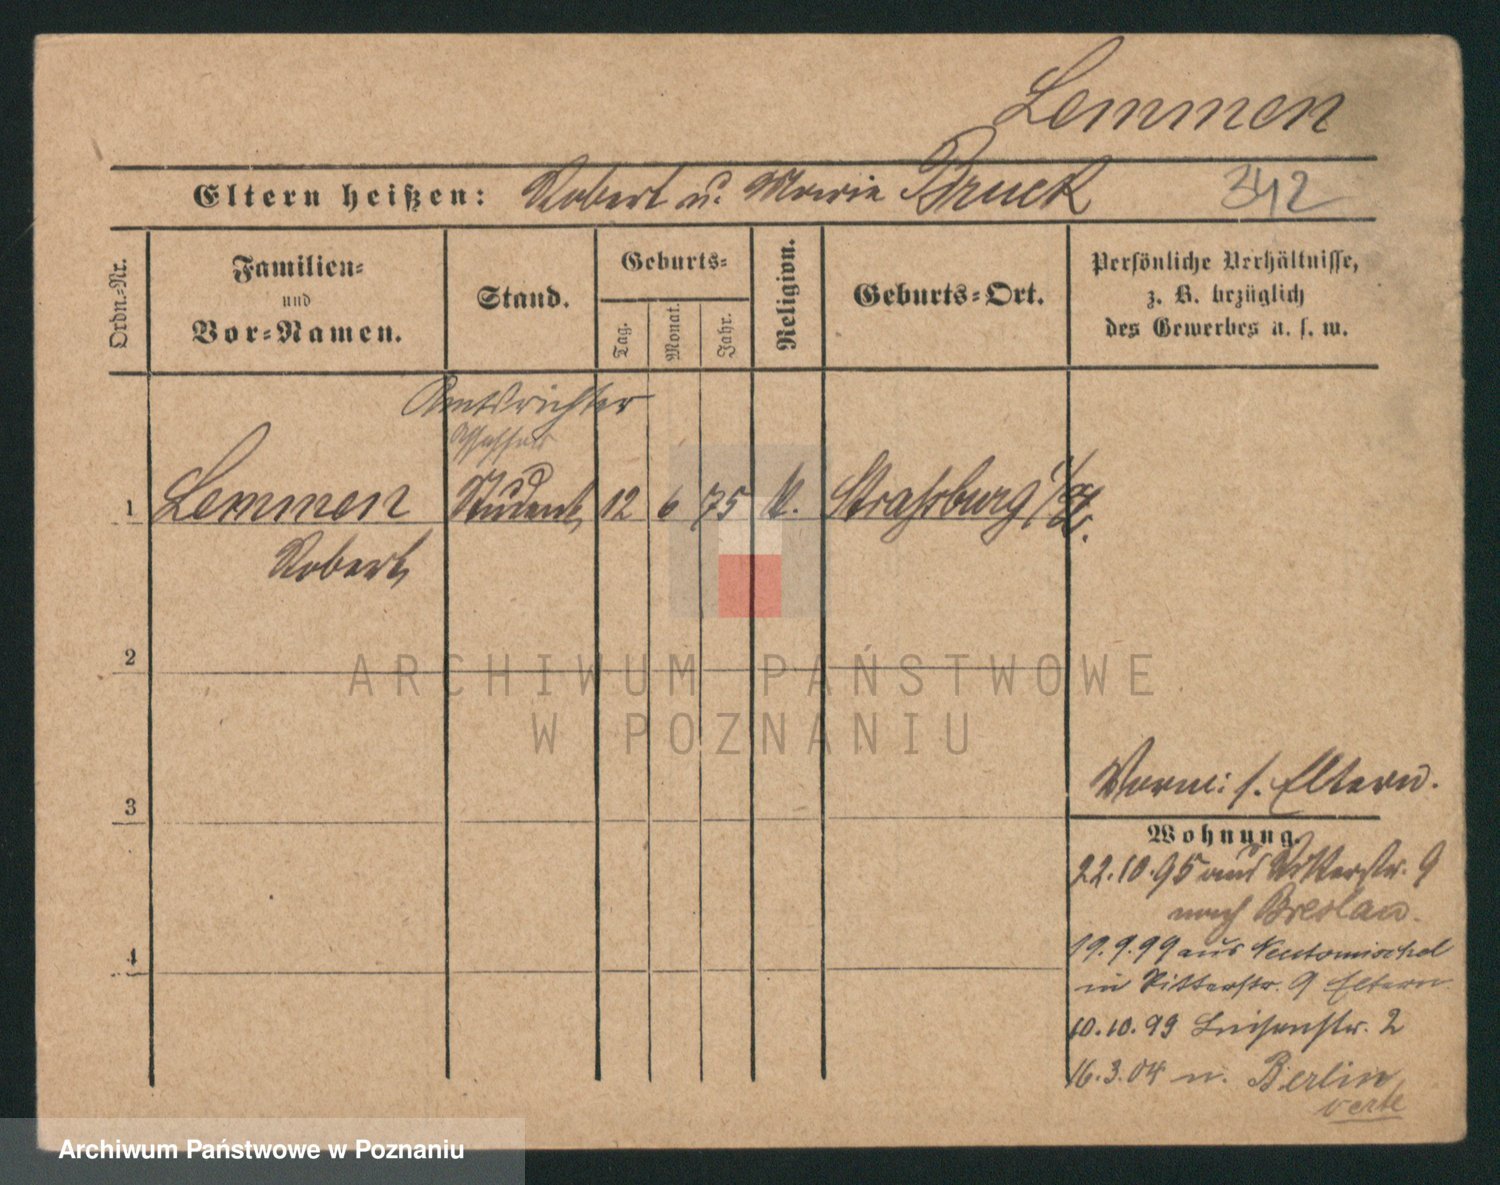 Lemmen
Eltern heißen: Robert u. Marie Bruck 342
Ordn.-Nr.
Familien-
und
Vor-Namen.
Stand.
Geburts-
Tag.
Monat.
Jahr.
Religion.
Geburts-Ort.
Persönliche Verhältnisse,
z. B. bezüglich
des Gewerbes u. s. w.
Amtsrichter
Assessor
1 Lemmen Student 12 6 75 k. Strassburg i/E.
Robert
2
ARCHIWUM PAŃSTWOWE
W POZNANIU
3
Vorm: s. Eltern.
Wohnung.
22.10.95 aus Ritterstr. 9
nach Breslau.
19.9.99 aus Neutomischel
in Ritterstr. 9 Eltern.
4
10.10.99 Luisenstr. 2
16.3.04 n. Berlin
verte
Archiwum Państwowe w Poznaniu